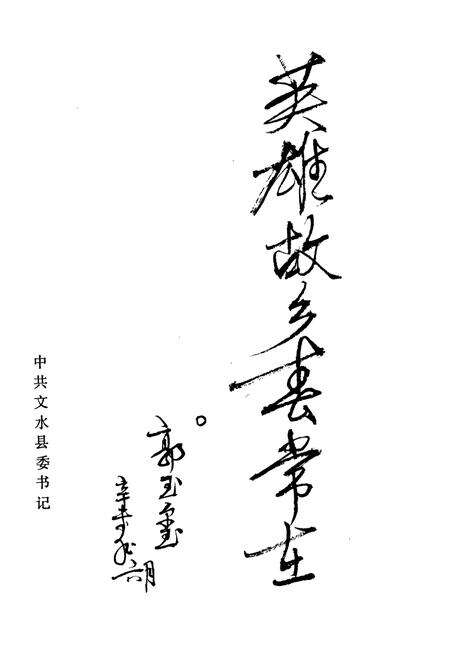 英雄故乡春常在。
郭玉玺
辛未年六月
中共文水县委书记